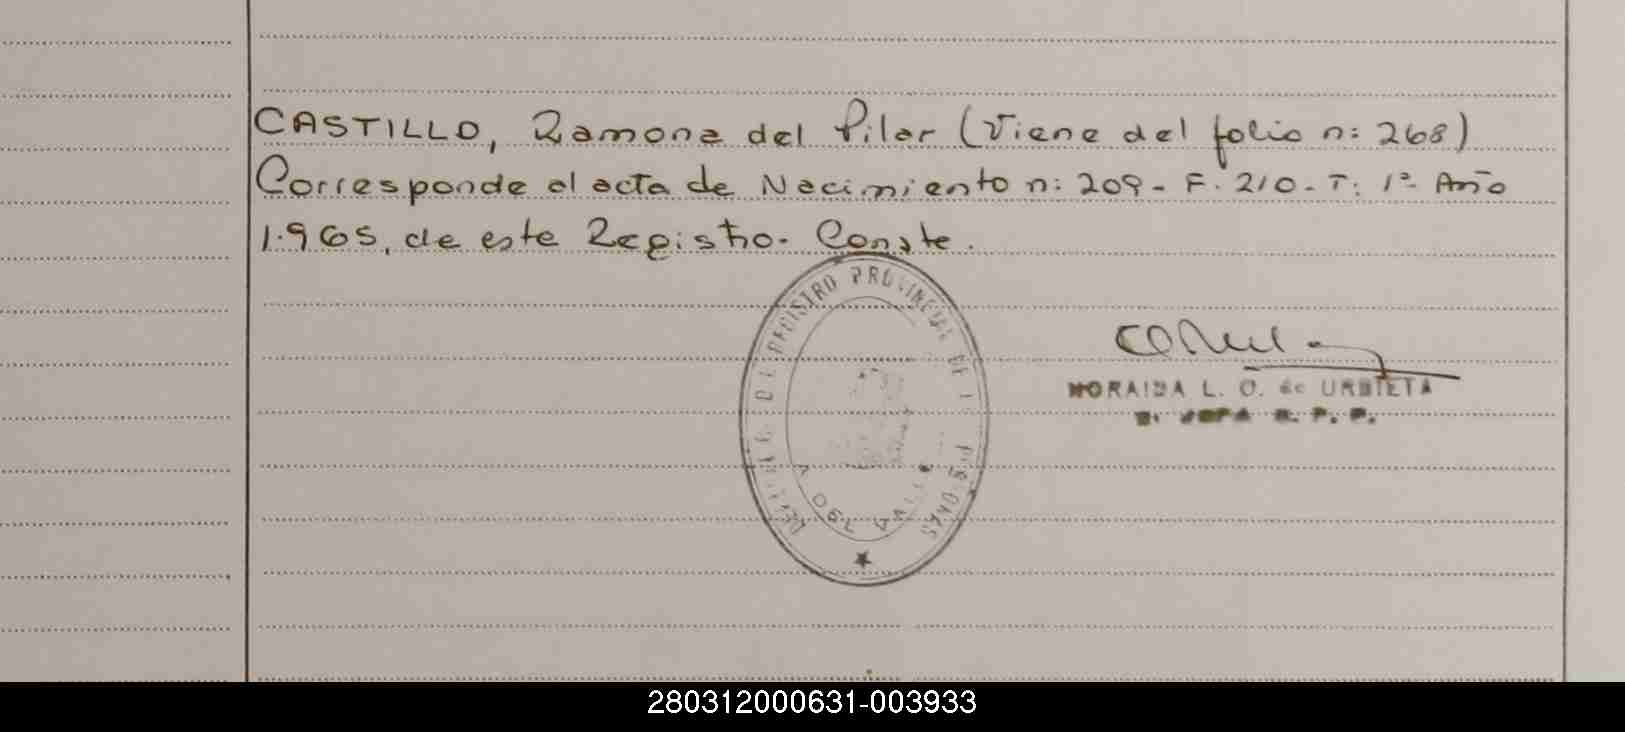 CASTILLO, Ramona del Pilar (Viene del folio n: 268)
Corresponde al acta de Nacimiento n: 209 - F. 210 - T: 1º- Año
1.965, de este Registro. Conste.
REGISTRO PROVINCIAL DE L
PERSONAS
DEL VALLE
NORAIDA L. O. de URBIETA
JEFA R. P. P.
280312000631-003933